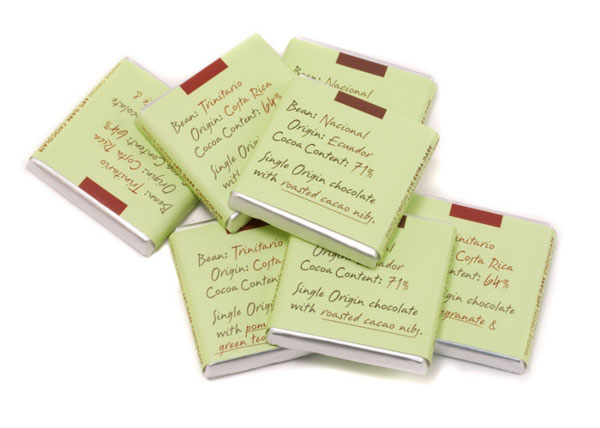 Bean: Trinitario
Origin: Costa Rica
Cocoa Content: 64%
chocolate
&
Bean: Trinitario
Origin: Costa Rica
Cocoa Content: 64%
Single Origin
with
Bean: Nacional
Bean: Nacional
Origin: Ecuador
Cocoa Content: 71%
Single Origin chocolate
with roasted cacao nibs.
Bean: Trinitario
Origin: Costa
Cocoa Content:
Single Origin
with pom
green tea
Ecuador
Content: 71%
Single Origin chocolate
with roasted cacao nibs.
Trinitario
Costa Rica
Content: 64%
chocolate
granate &